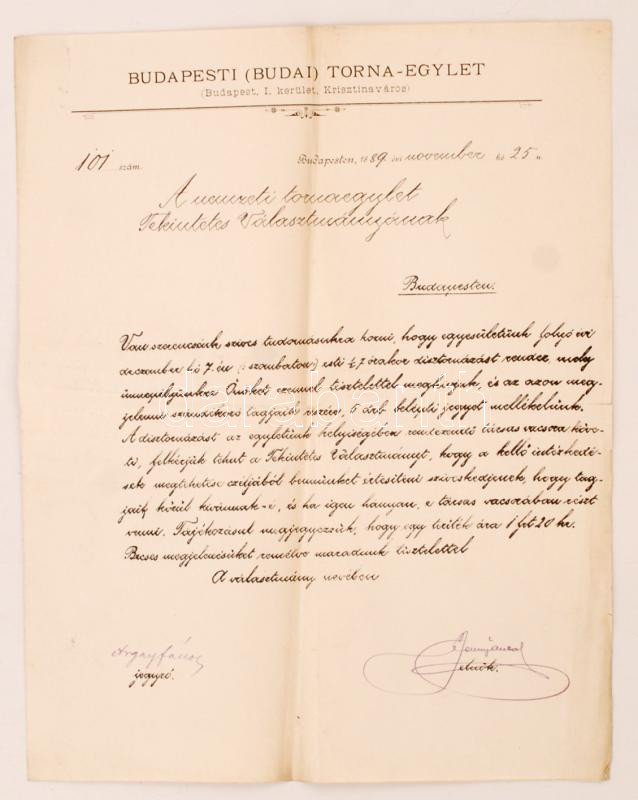 BUDAPESTI (BUDAI) TORNA-EGYLET
(Budapest, I. kerület, Krisztinaváros)
101 szám. Budapesten, 1889 évi november hó 25 n.
A nemzeti tornaegylet
Tekintetes Választmányjának
Budapesten.
Van szerencsénk szives tudomásukra hozni, hogy egyesületünk folyó évi
deczember hó 7.én (: szombaton :) esti ½ 7 órakor dísztornázást rendez, mely
ünnepélyünkre Önöket ezennel tisztelettel meghívjuk, és az azon meg-
jelenni szándékozó tagjaik részére, 5 drb belépti jegyet mellékelünk.
A dísztornázást az egyletünk helyiségében rendezendő társas vacsora köve-
ti, felkérjük tehát a Tekintetes Választmányt, hogy a kellő intézkedé-
sek megtehetése czéljából bennünket értesíteni sziveskedjenek, hogy tag-
jaik közül kivánnak-é, és ha igen hányan, e társas vacsorában részt
venni. Tájékozásul megjegyezzük, hogy egy teríték ára 1 frt 20 kr.
Becses megjelenésüket remélve maradunk tisztelettel
A választmány nevében
Argay János
jegyző. elnök.
darabanth